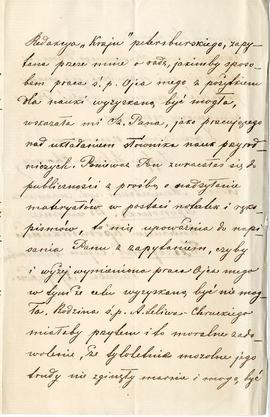 Redakcya „Kraju" petersburskiego, zapy-
tana przeze mnie o radę, jakimby sposo-
bem praca ś. p. Ojca mego z pożytkiem
dla nauki wyzyskaną być mogła,
wskazała mi Sz. Pana, jako pracującego
nad układaniem słownika nauk przyrod-
niczych. Ponieważ Pan zwracałeś się do
publiczności z prośbą o nadsyłanie
materyałów w postaci notatek i ręko-
pismów, to mię upoważnia do napi-
sania Panu z zapytaniem, czyby
i wyżej wymieniona praca Ojca mego
w tymże celu wyzyskaną być nie mog-
ła. Rodzina ś. p. A. Leliwa-
miałaby przytem i to moralne zado-
wolenie, że tyloletnie mozolne jego
trudy nie zginęły marnie i mogą być